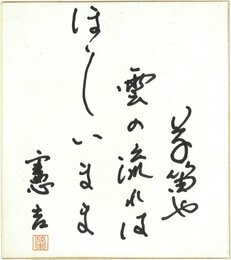 草笛や
雲の流れは
ほしいまま
憲吉